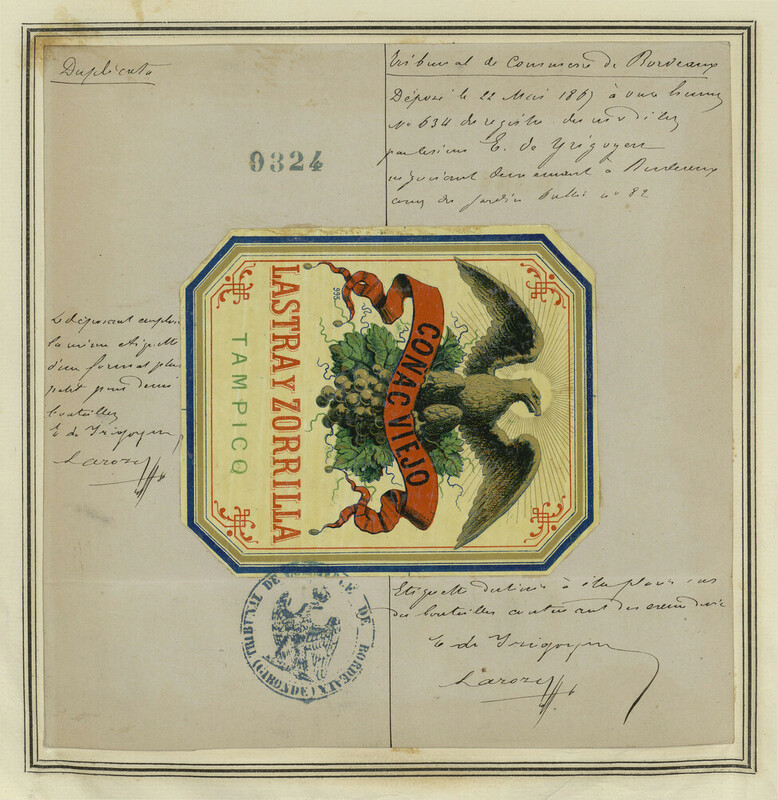 Duplicata
Tribunal de Commerce de Bordeaux
Déposé le 22 Mai 1867 à onze heures
No 634 de registre
par le sieur E. de Yrigoyen
négociant demeurant à Bordeaux
cours du Jardin Public no 82
0324
995
CONAC VIEJO
LASTRA Y ZORRILLA
TAMPICO
Le déposant emploie
la même étiquette
d'un format plus
petit pour demi
bouteilles
E de Yrigoyen
Laroze
TRIBUNAL DE COMMERCE DE BORDEAUX
(GIRONDE)
Etiquette destinée à être placée sur
des bouteilles contenant des eaux de vie
E de Yrigoyen
Laroze